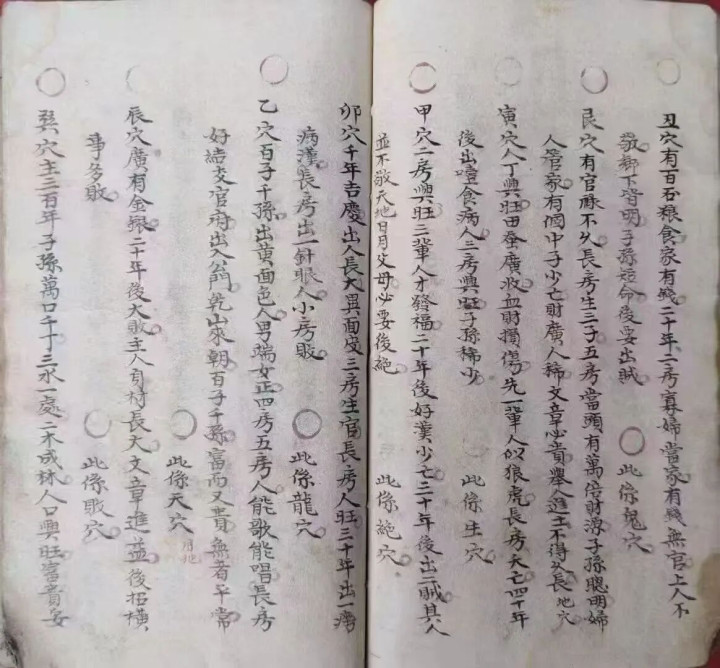 丑穴有百石粮食家有錢二十年二房寡婦當家有錢無官上人不
敬鄉下皆明子孫短命後要出賊
此係鬼穴
艮穴有官祿不久長房生三子五房當頭有萬倍財源子孫聰明婦
人管家有個中子少亡財廣人稀文章必貴舉人進士不得久長
地穴
寅穴人丁興旺田蚕廣收血財損傷先一輩人似狼虎長房夭亡四十年
後出噎食病人三房興旺子孫稀少
此係生穴
甲穴二房興旺三輩人才發福二十年後好漢少亡三十年後出二賊其人
並不敬天地日月父母必要後絕
此係絕穴
卯穴千年吉慶出人長大異面皮三房生官長房人旺三十年出一癆
病漢長房出一針眼人小房敗
此係龍穴
乙穴百子千孫出黃面色人男端女正四房五房人能歌能唱長房
好結交官府出入衙乾山來朝百子千孫富而又貴無者平常
此係天穴
辰穴廣有金銀二十年後大敗主人有材長大文章進益後招橫
事多敗
此係敗穴
巽穴主三百年子孫萬口千丁三水一處二木成林人口興旺富貴安